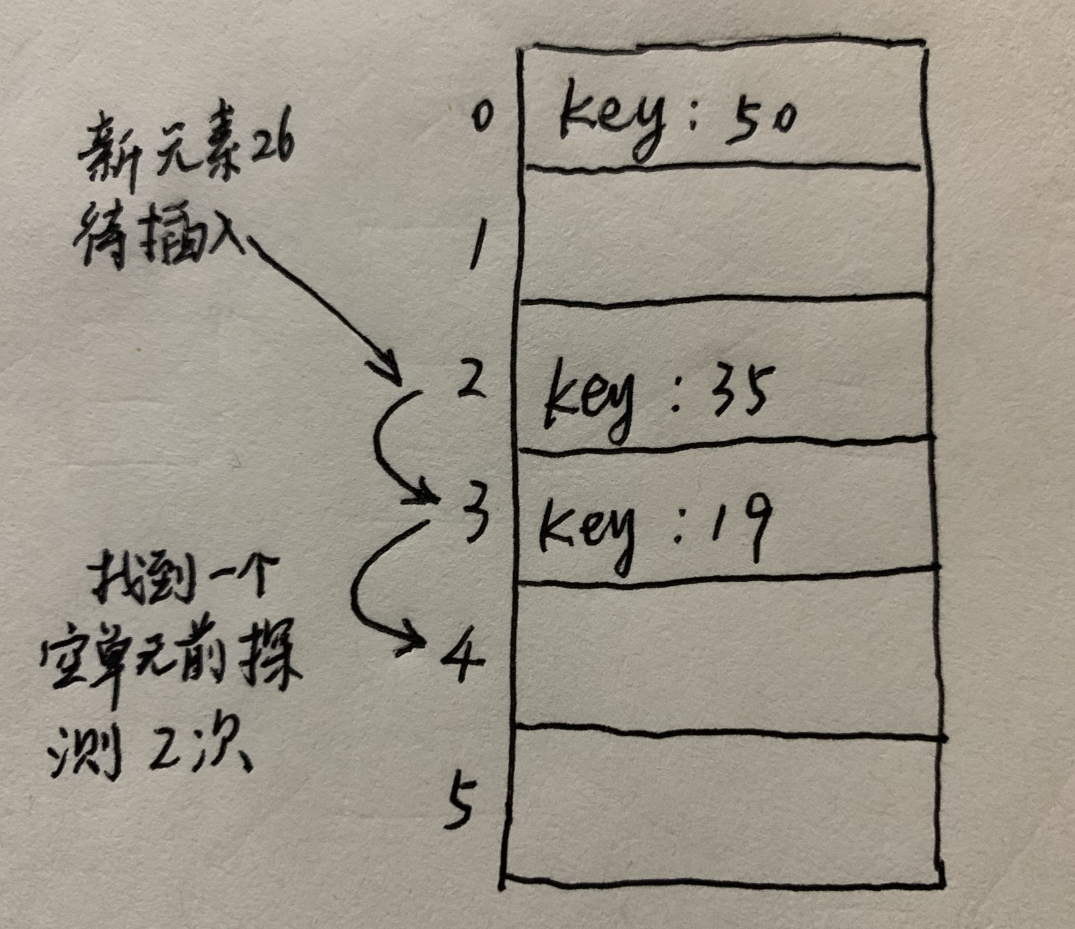 新元素26
待插入
0 key: 50
1
2 key: 35
3 key: 19
4
5
找到一个
空单元前探
测2次